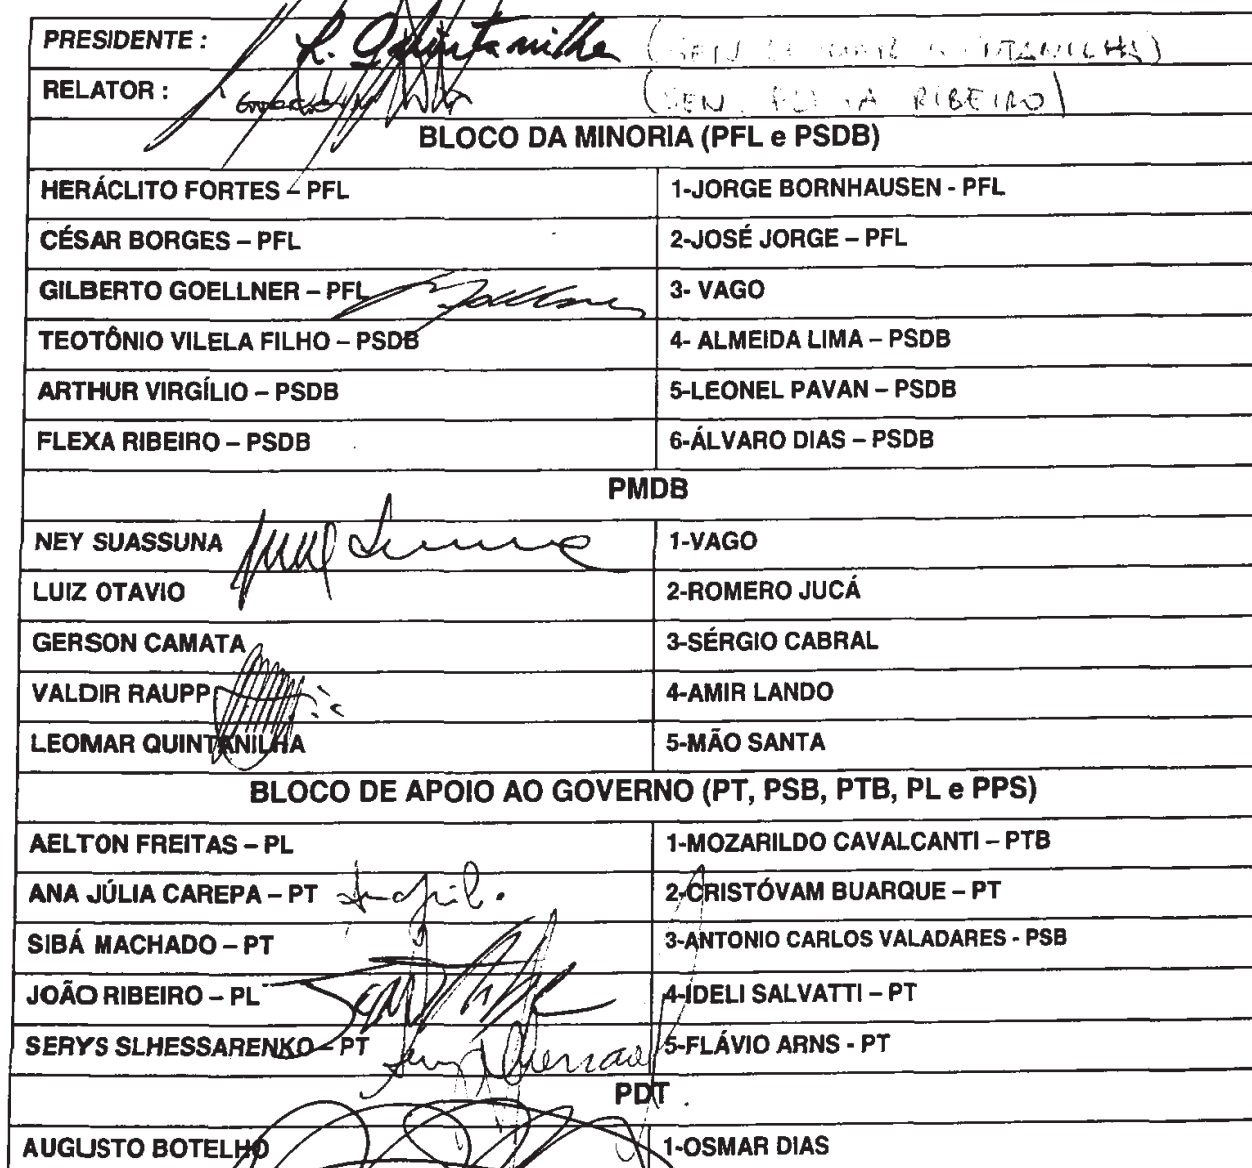 PRESIDENTE : L. Quintanilha (SEN LEOMAR QUINTANILHA)
RELATOR : (SEN. FLEXA RIBEIRO)
BLOCO DA MINORIA (PFL e PSDB)
HERÁCLITO FORTES – PFL 1-JORGE BORNHAUSEN - PFL
CÉSAR BORGES – PFL 2-JOSÉ JORGE – PFL
GILBERTO GOELLNER – PFL 3- VAGO
TEOTÔNIO VILELA FILHO – PSDB 4- ALMEIDA LIMA – PSDB
ARTHUR VIRGÍLIO – PSDB 5-LEONEL PAVAN – PSDB
FLEXA RIBEIRO – PSDB 6-ÁLVARO DIAS – PSDB
PMDB
NEY SUASSUNA 1-VAGO
LUIZ OTAVIO 2-ROMERO JUCÁ
GERSON CAMATA 3-SÉRGIO CABRAL
VALDIR RAUPP 4-AMIR LANDO
LEOMAR QUINTANILHA 5-MÃO SANTA
BLOCO DE APOIO AO GOVERNO (PT, PSB, PTB, PL e PPS)
AELTON FREITAS – PL 1-MOZARILDO CAVALCANTI – PTB
ANA JÚLIA CAREPA – PT 2-CRISTÓVAM BUARQUE – PT
SIBÁ MACHADO – PT 3-ANTONIO CARLOS VALADARES - PSB
JOÃO RIBEIRO – PL 4-IDELI SALVATTI – PT
SERYS SLHESSARENKO – PT 5-FLÁVIO ARNS - PT
PDT
AUGUSTO BOTELHO 1-OSMAR DIAS